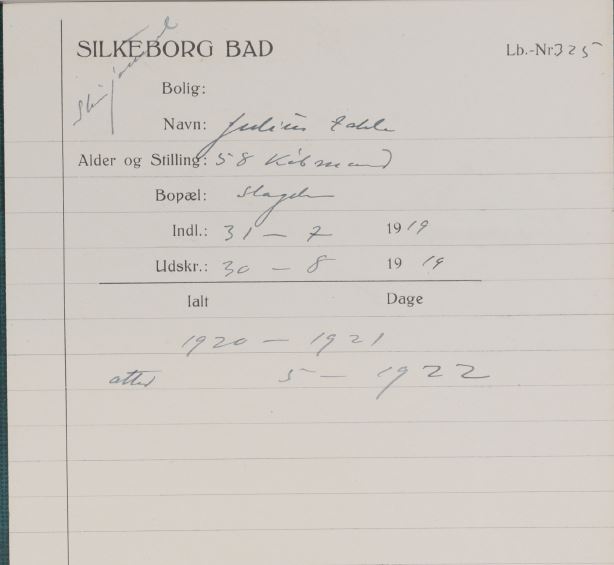 SILKEBORG BAD
Lb.-Nr. 325
Bolig:
Navn: Julius
Alder og Stilling: 58 Købmand
Bopæl:
Indl.: 31 — 7 1919
Udskr.: 30 — 8 1919
Ialt Dage
1920 — 1921
atter 5 — 1922